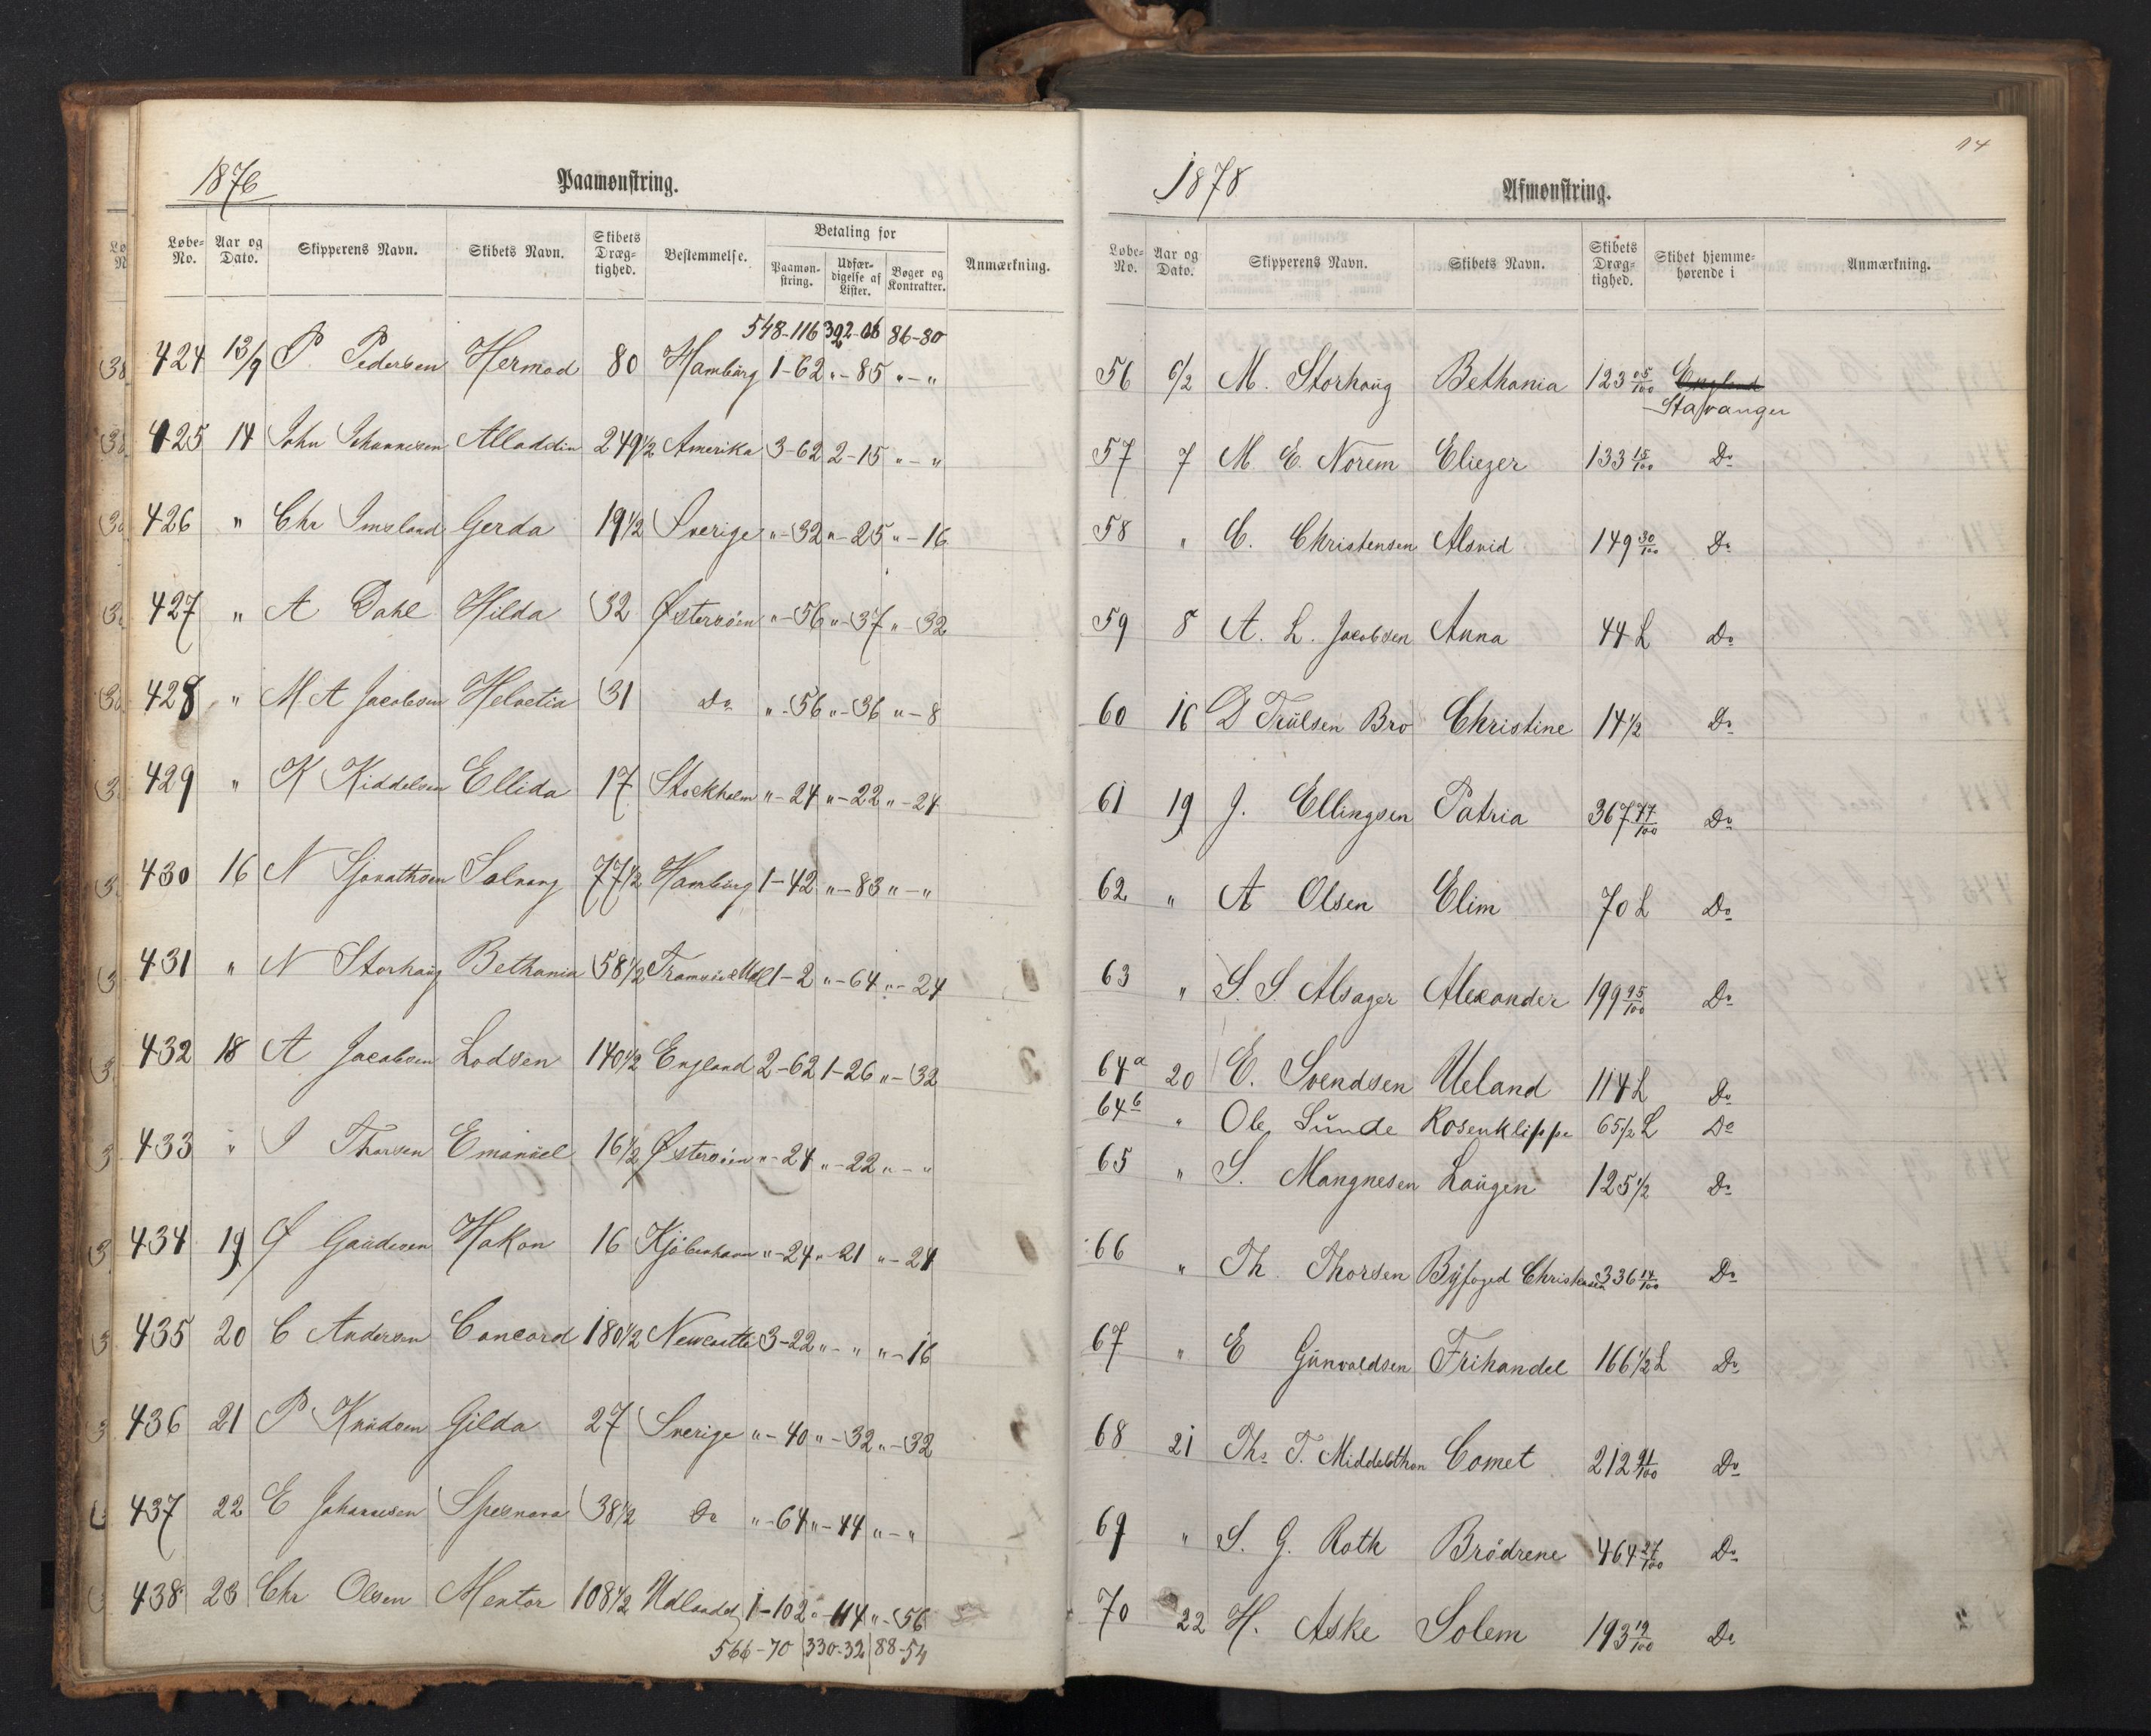 1876
Paamønstring.
Løbe-No. Aar og Dato. Skipperens Navn. Skibets Navn. Skibets Dræg-tighed. Bestemmelse. Betaling for Paamøn-string. Udfær-digelse af Lister. Bøger og Kontrakter. Anmærkning.
548-116 392-06 86-80
424 13/9 P. Pedersen Hermod 80 Hamburg 1-62 "-85 "-"
425 14 John Johannesen Alladdin 249 1/2 Amerika 3-62 2-15 "-"
426 " Chr Imsland Gerda 19 1/2 Sverige "-32 "-25 "-16
427 " A Dahl Hilda 32 Østersöen "-56 "-37 "-32
428 " M A Jacobsen Helvetia 31 Do "-56 "-36 "-8
429 " K Kiddelsen Ellida 17 Stockholm "-24 "-22 "-24
430 16 N Sjonathsen Solvang 77 1/2 Hamburg 1-42 "-83 "-"
431 " N Storhaug Bethania 58 1/2 1-2 "-64 "-24
432 18 A Jacobsen Lodsen 140 1/2 England 2-62 1-26 "-32
433 " I Thorsen Emanuel 16 1/2 Østersöen "-24 "-22 "-"
434 19 Ø Gaudesen Hakon 16 Kjöbenhavn "-24 "-21 "-24
435 20 C Andersen Concord 180 1/2 Newcastle 3-22 "-" "-16
436 21 P Knudsen Gilda 27 Sverige "-40 "-32 "-32
437 22 E Johannesen Spesnova 38 1/2 Do "-64 "-44 "-"
438 23 Chr Olsen Mentor 108 1/2 Udlandet 1-102 "-114 "-56
566-70 330-32 88-54
14
1878
Afmønstring.
Løbe-No. Aar og Dato. Skipperens Navn. Skibets Navn. Skibets Dræg-tighed. Skibet hjemme-hørende i Anmærkning.
56 6/2 M. Storhaug Bethania 123 05/100 England
Stavanger
57 7 M. E. Norem Eliezer 133 15/100 Do
58 " C. Christensen Alsvid 149 30/100 Do
59 8 A. L. Jacobsen Anna 44 L Do
60 16 D Trulsen Bro Christine 14 1/2 Do
61 19 J. Ellingsen Patria 367 77/100 Do
62 " A Olsen Elim 70 L Do
63 " S. S. Alsager Alexander 199 95/100 Do
64a 20 E. Svendsen Ueland 114 L Do
64b " Ole Sunde Rosenklippe 65 1/2 L Do
65 " S. Mangnesen Laugen 125 1/2 Do
66 " Th. Thorsen Byfoged Christensen 336 14/100 Do
67 " E Gunvaldsen Frihandel 166 1/2 L Do
68 21 Ths T. Middelthon Comet 212 91/100 Do
69 " S. G. Roth Brödrene 464 27/100 Do
70 22 H. Aske Solem 193 19/100 Do